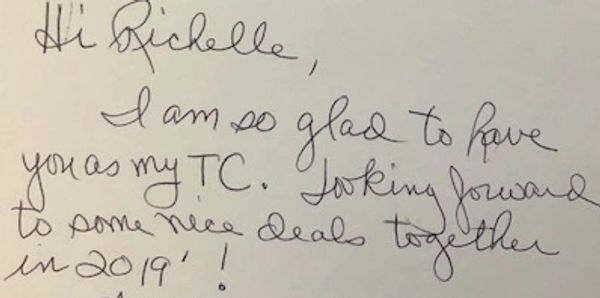 Hi Richelle,
I am so glad to have
you as my TC. Looking forward
to some nice deals together
in 2019' !